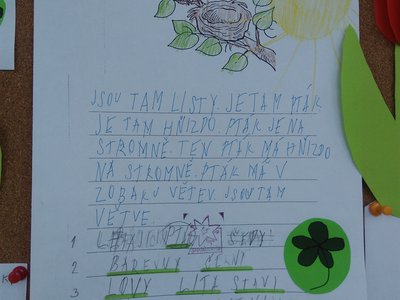 JSOU TAM LISTY. JE TAM PTÁK
JE TAM HŇIZDO. PTÁK JE NA
STROMNĚ. TEN PTÁK MÁ HŇIZDO
NA STROMNĚ. PTÁK MÁ V
ZOBÁKU VĚTEV. JSOU TAM
VĚTVE.
1
2 BAREVNÝ ČERNÍ
3 LOVÝ LÍTÁ STAVÍ